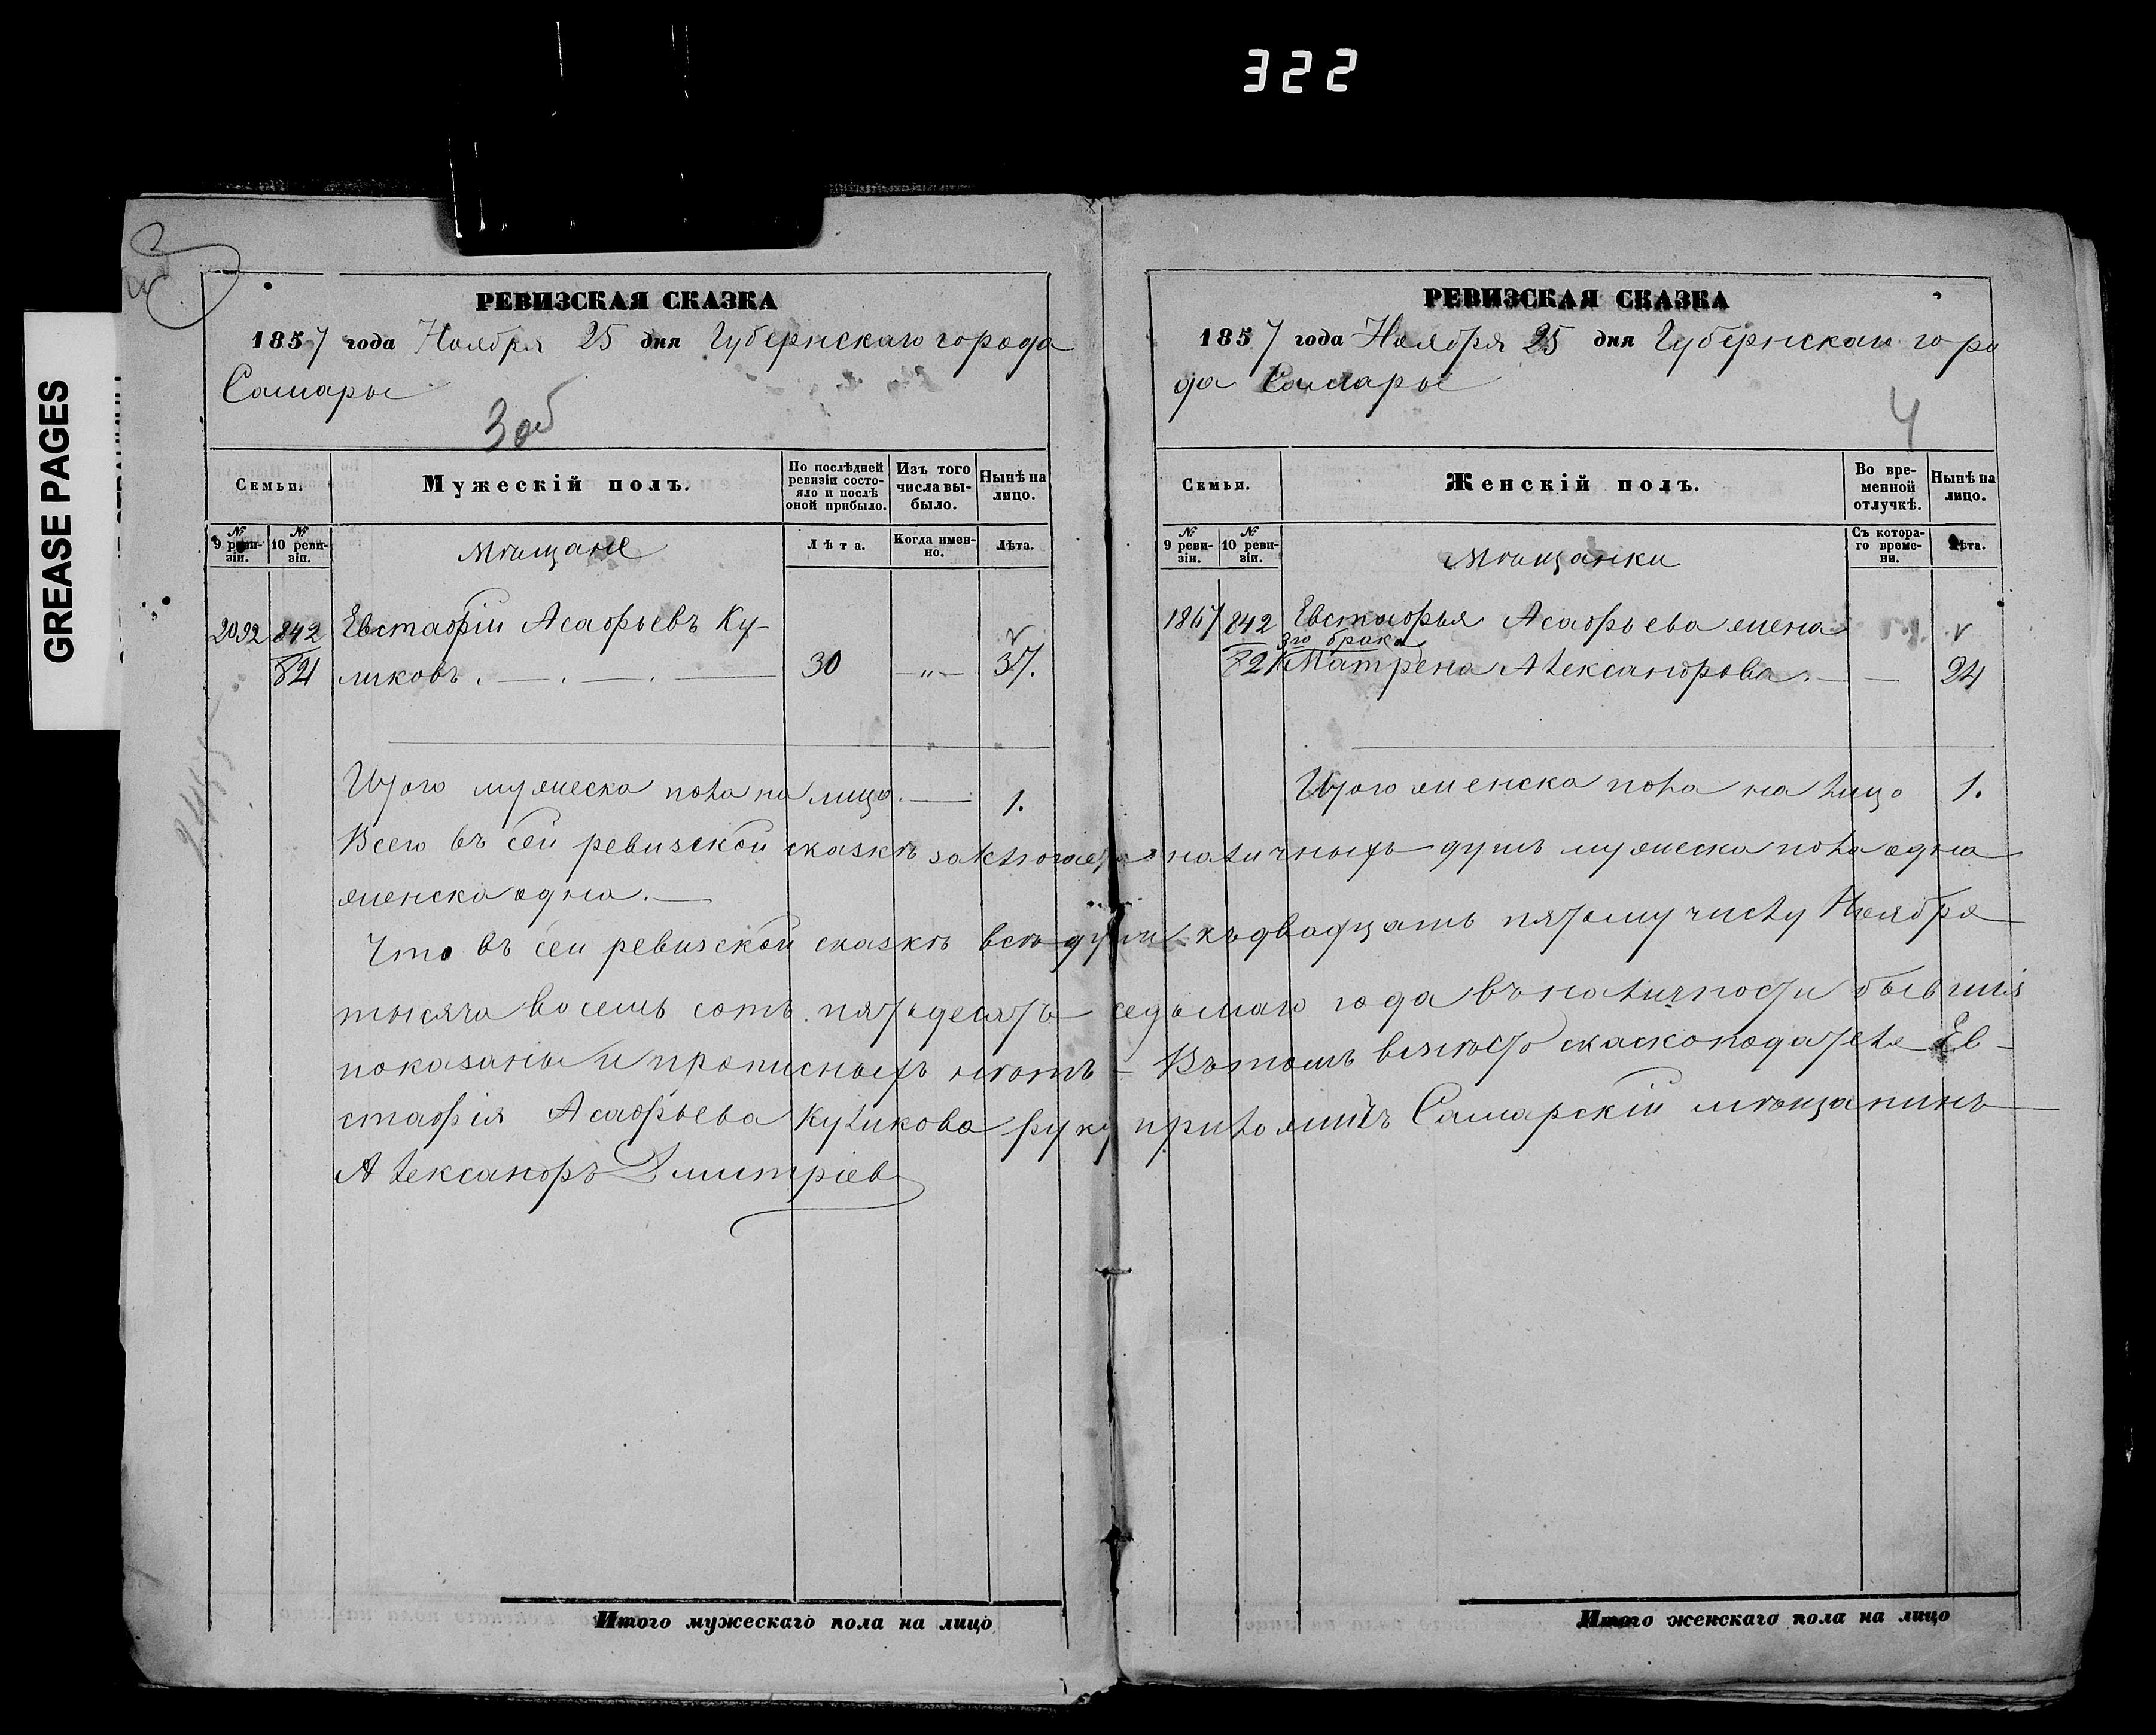 322
GREASE PAGES
РЕВИЗСКАЯ СКАЗКА
1857 года Ноября 25 дня Губернскаго города
Самары
3 об
Семьи.
Мужескій полъ.
По послѣдней ревизіи состояло и послѣ оной прибыло.
Изъ того числа выбыло.
Нынѣ на лицо.
№ 9 ревизіи.
№ 10 ревизіи.
Мѣщане
Лѣта.
Когда именно.
Лѣта.
2092 842 Евстафій Асафьевъ Ку-
821 ликовъ. 30 -"- 37.
Итого мужеска пола на лицо. 1.
РЕВИЗСКАЯ СКАЗКА
1857 года Ноября 25 дня Губернскаго горо
да Самары
4
Семьи.
Женскій полъ.
Во временной отлучкѣ.
Нынѣ на лицо.
№ 9 ревизіи.
№ 10 ревизіи.
Мѣщанки
Съ котораго времени.
Лѣта.
1867 842 Евстафья Асафьева жена
3го брака
821 Матрена Александрова. 24
Итого женска пола на лицо 1.
Всего въ сей ревизской сказкѣ заключается наличныхъ душъ мужеска пола одна
женска одна.
Что въ сей ревизской сказкѣ всѣ души къ двадцать пятому числу Ноября
тысяча восемь сотъ пятьдесятъ седьмаго года въ наличности бывшія
показаны и прописныхъ нѣтъ - Въ томъ вмѣсто сказкоподателя Ев-
стафія Асафьева Куликова руку приложилъ Самарскій мѣщанинъ
Александръ Дмитріев
Итого мужескаго пола на лицо
Итого женскаго пола на лицо